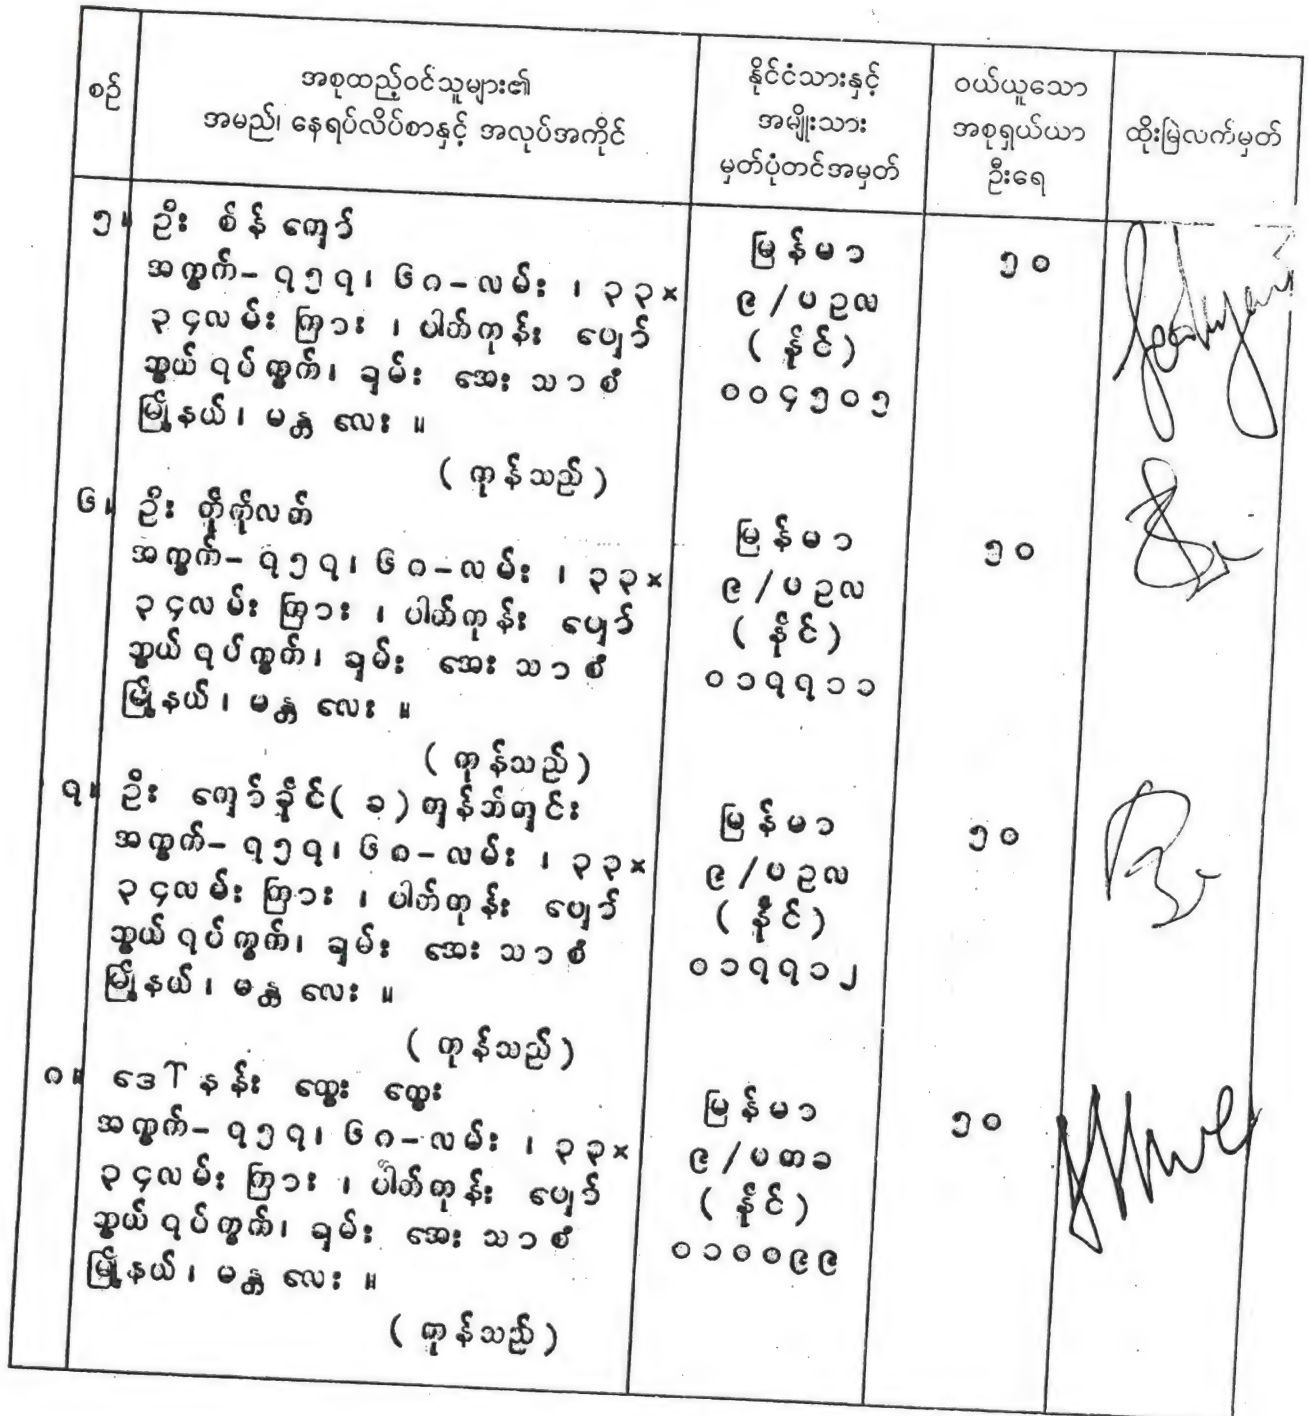 စဉ်
အစုထည့်ဝင်သူများ၏
အမည်၊ နေရပ်လိပ်စာနှင့် အလုပ်အကိုင်
နိုင်ငံသားနှင့်
အမျိုးသား
မှတ်ပုံတင်အမှတ်
ဝယ်ယူသော
အစုရှယ်ယာ
ဦးရေ
ထိုးမြဲလက်မှတ်
၅။ ဦး စိန် ကျော်
အကွက်-၇၅၇၊ ၆၈-လမ်း ၊ ၃၃×
၃၄လမ်း ကြား ၊ ပါတ်ကုန်း ပျော်
ဘွယ် ရပ်ကွက်၊ ချမ်း အေး သာ စံ
မြို့နယ်၊ မန္တ လေး ။
( ကုန်သည် )
မြန်မာ
၉/ပဥလ
( နိုင် )
၀၀၄၅၀၅
၅၀
၆။ ဦး တိုကိုလတ်
အကွက်-၇၅၇၊ ၆၈-လမ်း ၊ ၃၃×
၃၄လမ်း ကြား ၊ ပါတ်ကုန်း ပျော်
ဘွယ် ရပ်ကွက်၊ ချမ်း အေး သာ စံ
မြို့နယ်၊ မန္တ လေး ။
( ကုန်သည် )
မြန်မာ
၉/ပဥလ
( နိုင် )
၀၁၇၇၁၁
၅၀
၇။ ဦး ကျော်ခိုင်( ခ ) ကျန်ဘ်ကျင်း
အကွက်-၇၅၇၊ ၆၈-လမ်း ၊ ၃၃×
၃၄လမ်း ကြား ၊ ပါတ်ကုန်း ပျော်
ဘွယ် ရပ်ကွက်၊ ချမ်း အေး သာ စံ
မြို့နယ်၊ မန္တ လေး ။
( ကုန်သည် )
မြန်မာ
၉/ပဥလ
( နိုင် )
၀၁၇၇၁၂
၅၀
၈။ ဒေါ် နန်း ထွေး ထွေး
အကွက်-၇၅၇၊ ၆၈-လမ်း ၊ ၃၃×
၃၄လမ်း ကြား ၊ ပါတ်ကုန်း ပျော်
ဘွယ် ရပ်ကွက်၊ ချမ်း အေး သာ စံ
မြို့နယ်၊ မန္တ လေး ။
( ကုန်သည် )
မြန်မာ
၉/မတခ
( နိုင် )
၀၁၀၀၉၉
၅၀